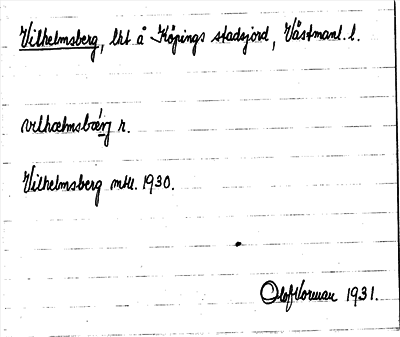 Vilhelmsberg, lht å Köpings stadsjord, Västmanl. l.
vılhælmsbær̨j r.
Vilhelmsberg mtl. 1930.
Olof Norman 1931.